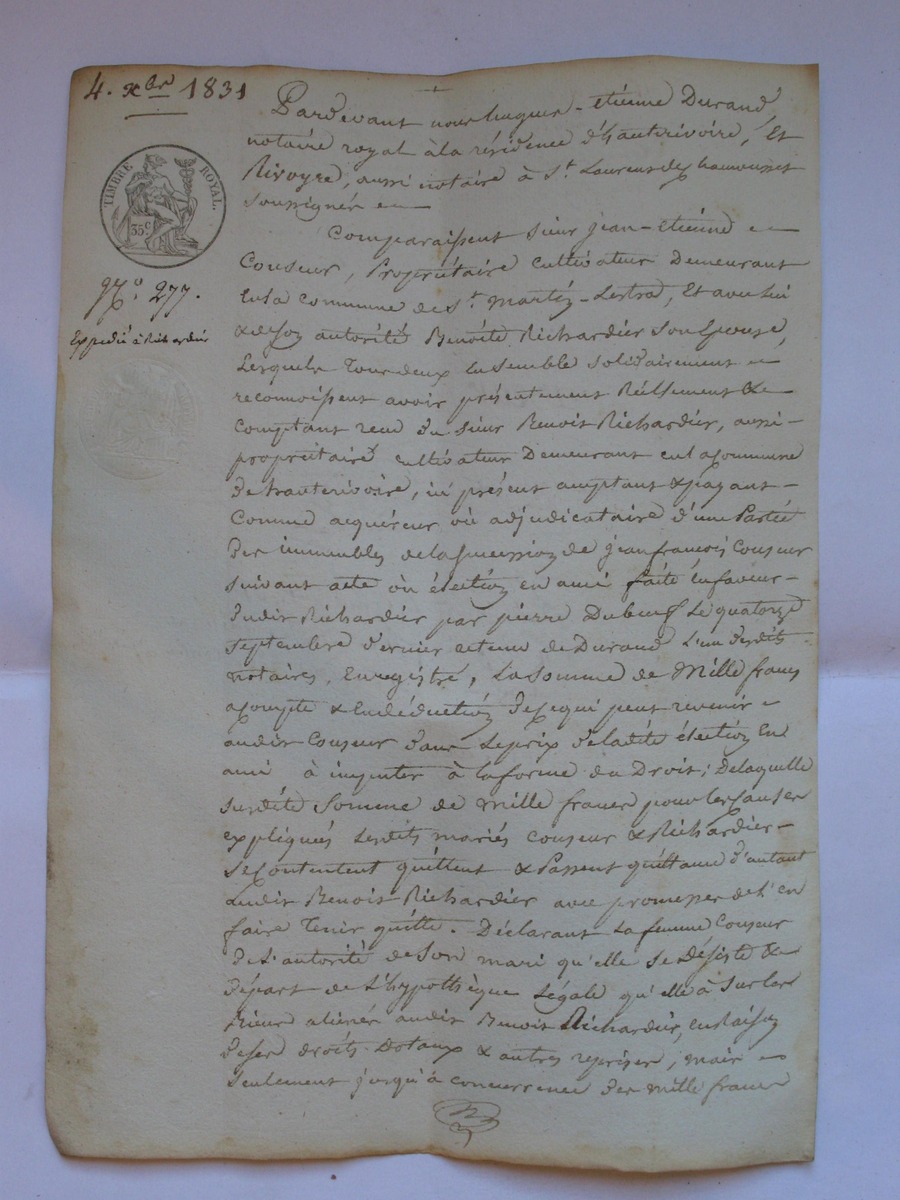 4. xbre 1831
TIMBRE ROYAL.
35c
No. 277.
Expédié à Richardier
Pardevant nous hugues-etiénne Durand,
notaire royal à la résidence d'hauterivoire, Et
Rivoyre, aussi notaire à St. Laurens de chamousset
soussignés
Comparaissent sieur jean-Etiénne
Couseur, Propriétaire cultivateur Demeurant
En la commune de St. Martin-Lestra, Et avec lui
& de son autorité Benoite Richardier son Epouse,
Lesquels Tous deux Ensemble solidairement
reconnoissent avoir présentement Réellement &
comptant reçu du sieur Benoit Richardier, aussi
propriétaire cultivateur Demeurant en la commune
de hauterivoire, ici présent acceptant & payant
Comme acquéreur où adjudicataire d'une Partie
Des immeubles de la succession de jean françois Couseur
suivant acte où éléction en ami faite En faveur
dudit Richardier par pierre Dubeuf Le quatorze
septembre dernier reçu de Durand L'un desdits
notaires, Enregistré, La Somme de Mille francs
acompte & En déduction De ce qui peut revenir
audit Couseur dans Le prix de ladite éléction En
ami à imputer à la forme du Droit; De laquelle
susdite Somme de Mille francs pour les causes
expliquées Lesdits mariés Couseur & Richardier
se contentent quittent & Passent quittance d'autant
audit Benoit Richardier avec promesses de L'en
faire Tenir quitte. Déclarant La femme Couseur
de L'autorité de Son mari qu'elle se Désiste &
Départ de L'hypothèque Légale qu'elle à Sur les
Biens aliénés audit Benoit Richardier, en raison
de ses droits Dotaux & autres reprises, mais
seulement jusqu'à concurrence des mille francs